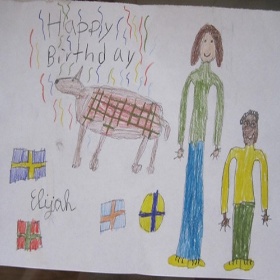 Happy
Birthday
Elijah